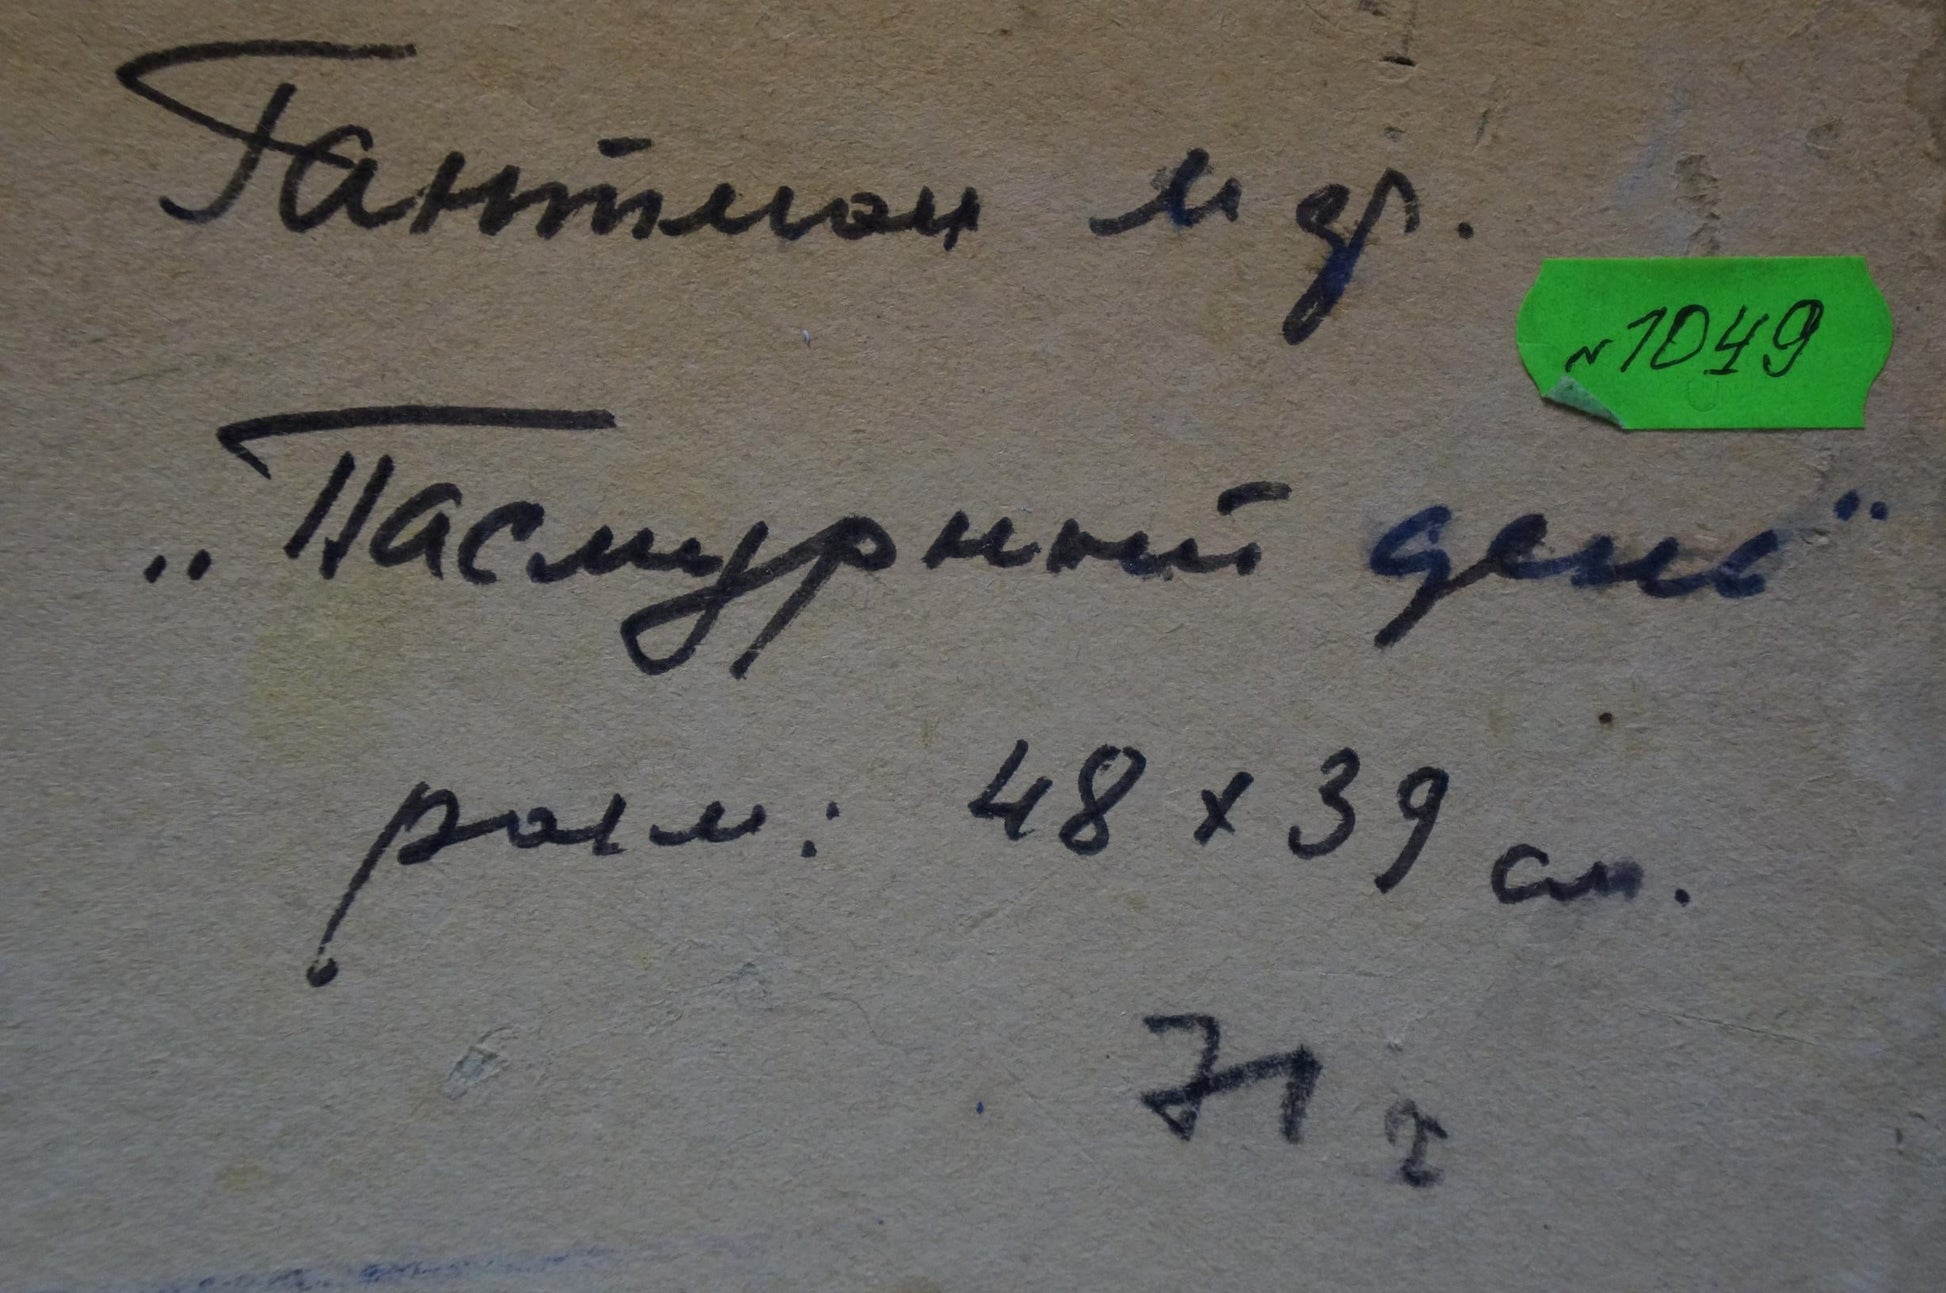 Гантман М др.
N1049
„Пасмурный день"
разм: 48 x 39 см.
71 г